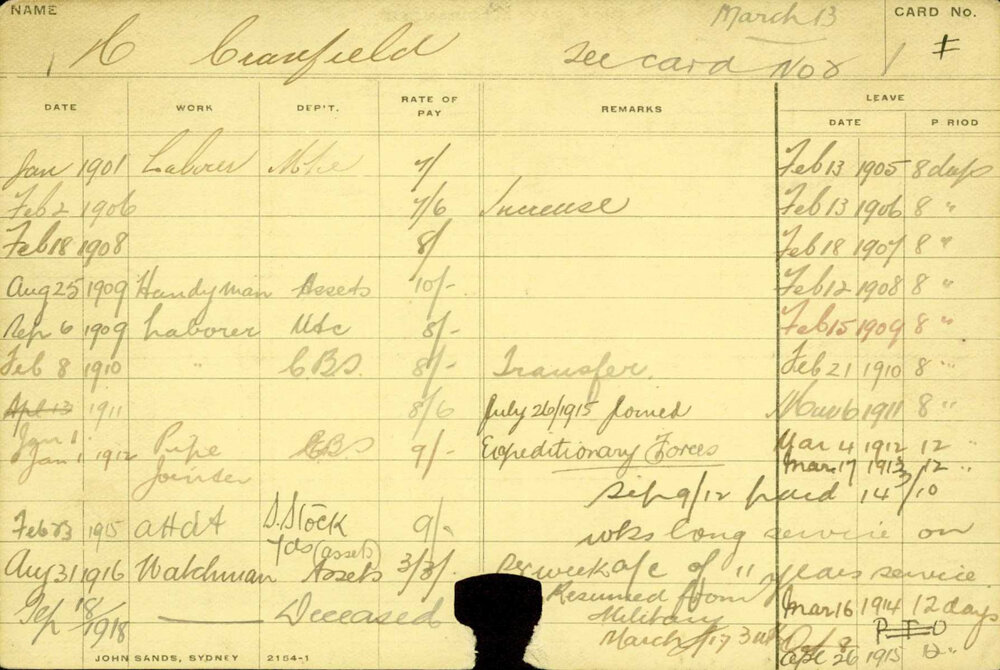 NAME
March 13
CARD No.
H Cranfield
See card No 2
1
DATE WORK DEP'T. RATE OF PAY REMARKS LEAVE
DATE P RIOD
Jan 1901 Laborer Mtce 7/ Feb 13 1905 8 days
Feb 2 1906 7/6 Increase Feb 13 1906 8 "
Feb 18 1908 8/ Feb 18 1907 8 "
Aug 25 1909 Handyman Assets 10/- Feb 12 1908 8 "
Sep 6 1909 Laborer Mtc 8/- Feb 15 1909 8 "
Feb 8 1910 " C.B.S. 8/- Transfer. Feb 21 1910 8 "
Apl 13 1911 8/6 July 26/1915 Joined Mar 6 1911 8 "
Jan 1
Jan 1 1912 Pipe CBS 9/- Expeditionary Forces Mar 4 1912 12 "
Jointer Mar 17 1913 12 "
Sep 9/12 paid 14 3/10
Feb 23 1915 attdt S. Stock 9/- wks long service on
Yds (assets)
Aug 31 1916 Watchman Assets 3/3/- per week a/c of 11 years service
Resumed from Mar 16 1914 12 days
Sep 18/1918 — Deceased Military
P.T.O
March /17
26 1915
JOHN SANDS, SYDNEY 2154-1